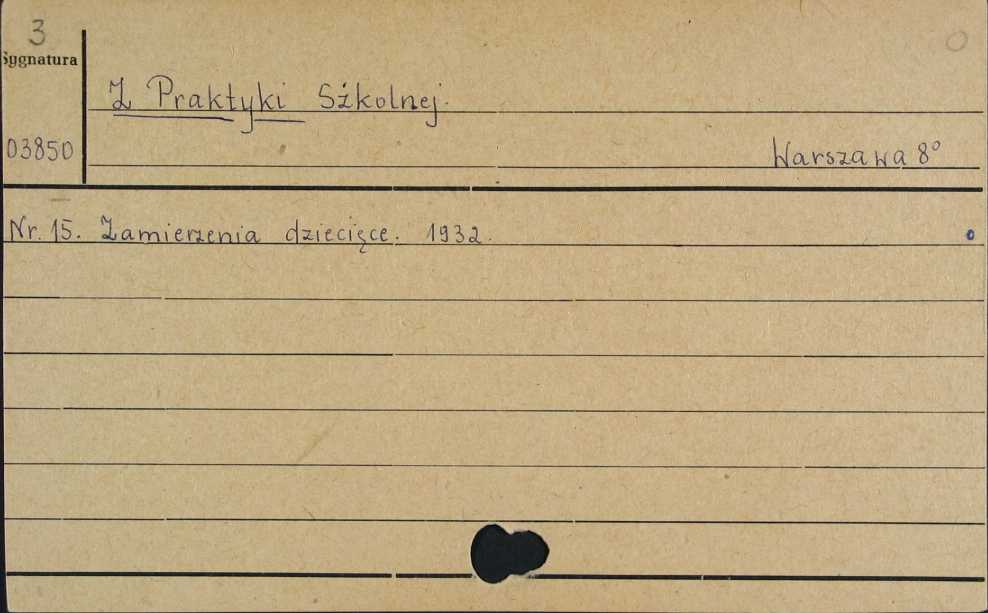 3
Sygnatura
Z Praktyki Szkolnej.
03850
Warszawa 8°
Nr. 15. Zamierzenia dziecięce. 1932.